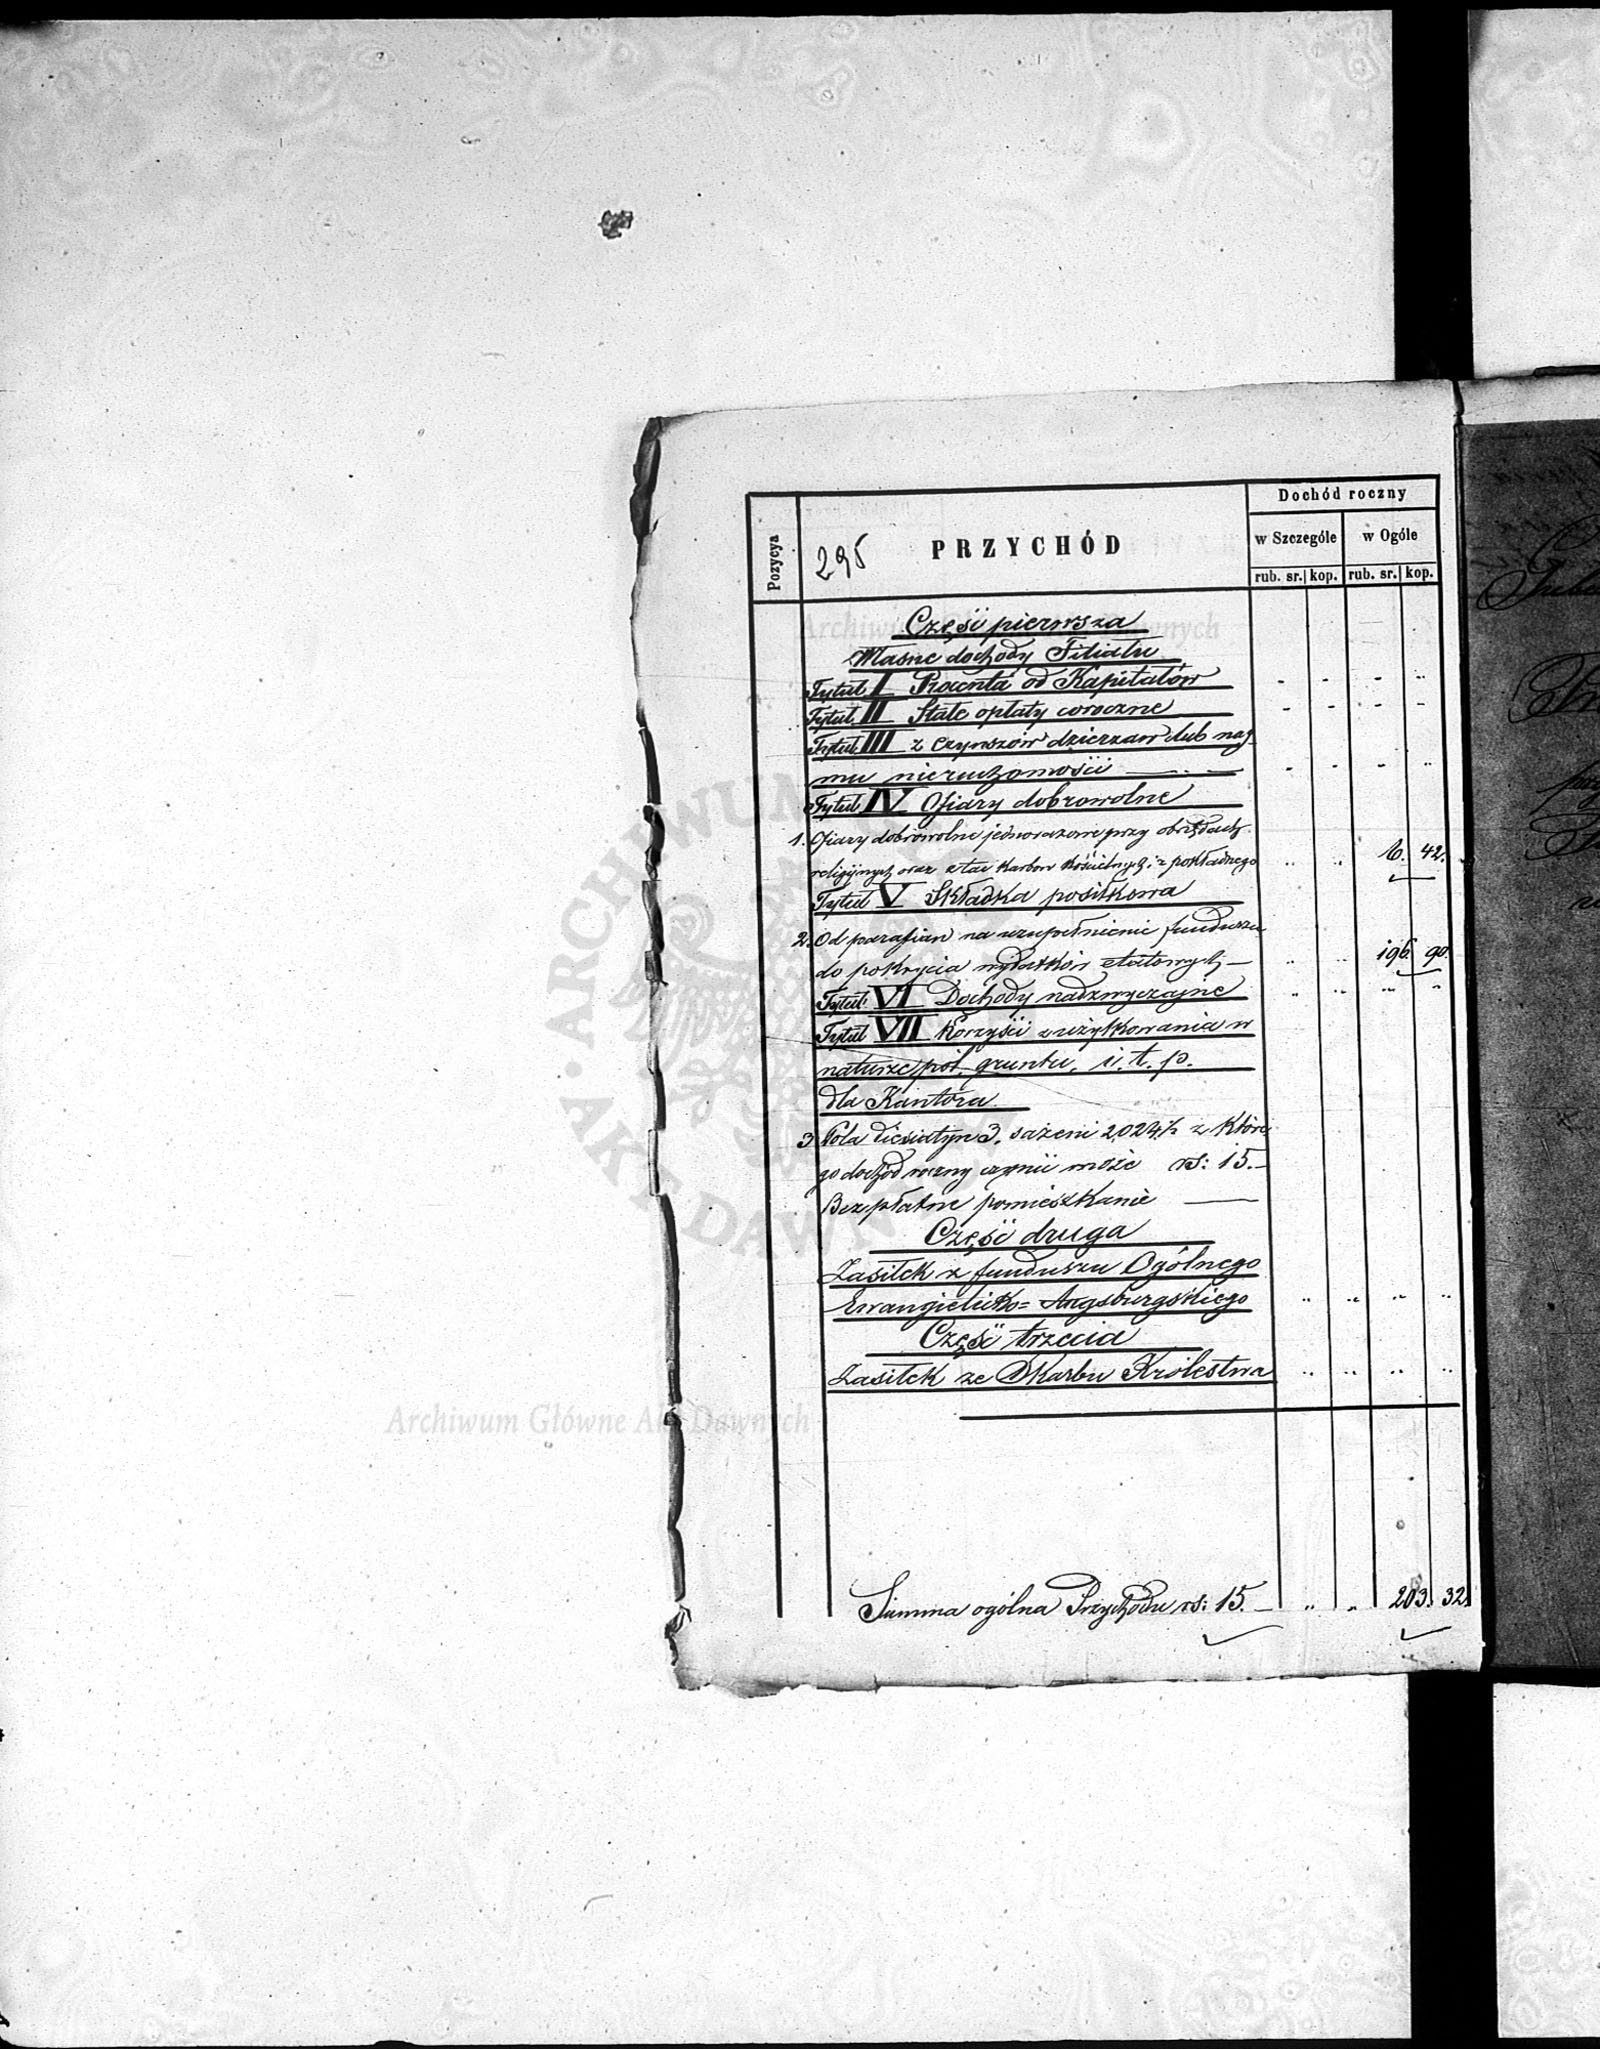 Dochód roczny
Pozycya
295
PRZYCHÓD
w Szczególe
w Ogóle
rub. sr. kop. rub. sr. kop.
Część pierwsza
Własne dochody Filiału
Tytuł I Procenta od Kapitałów
Tytuł II Stałe opłaty coroczne
Tytuł III z Czynszów dzierzaw lub naj-
mu nieruchomości
Tytuł IV Ofiary dobrowolne
1. Ofiary dobrowolne jednorazowe przy obrzędach
religijnych oraz z tac Karbon Kościelnych i z pokładnego 6. 42.
Tytuł V Składka posiłkowa
2. Od parafian na uzupełnienie funduszu
do pokrycia wydatków etatowych — 196. 90.
Tytuł VI Dochody nadzwyczajne
Tytuł VII Korzyści z użytkowania w
naturze pól, gruntu, i. t. p.
dla Kantora
3 Pola diesiatyn 3, sażeni 2,024½ z które-
go dochód roczny czynić może rs: 15.—
Bezpłatne pomieszkanie —
Część druga
Zasiłek z funduszu Ogólnego
Ewangielicko=Augsburgskiego
Część trzecia
Zasiłek ze Skarbu Królestwa
Summa ogólna Przychodu rs: 15.— 203. 32.
ARCHIWUM
AKT DAWNYCH
Archiwum Główne Akt Dawnych